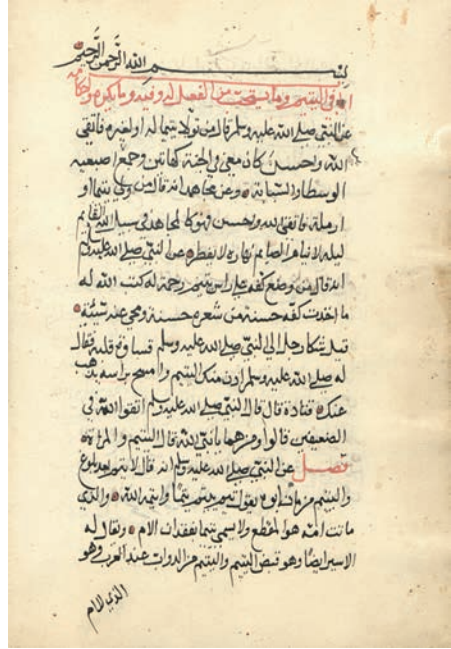 بسم الله الرحمن الرحيم
في اليتيم وما يستحب من الفعل له وفيه وما يكره من أحكامه
عن النبي صلى الله عليه وسلم قال من تولا يتيما له او لغيره فاتقى
الله واحسن كان معي في الجنة كهاتين وجمع اصبعيه
الوسطا والسبابة وعن مجاهد انه قال من ولي يتيما او
ارملة فاتقى الله واحسن فهو كالمجاهد في سبيل الله القايم
ليله لا ينام الصايم نهاره لا يفطر عن النبي صلى الله عليه وسلم
انه قال من وضع كفه على راس يتيم رحمة له كتب الله له
ما اخدت كفه حسنة من شعره حسنة ومحي عنه سيئة
قيل شكا رجل الى النبي صلى الله عليه وسلم قساوة قلبه فقال
له صلى الله عليه وسلم ادن منك اليتيم وامسح براسه يذهب
عنك قتادة قال قال النبي صلى الله عليه وسلم اتقوا الله في
الضعيفين قالوا ومن هما يا نبي الله قال اليتيم والمراة
فصل عن النبي صلى الله عليه وسلم انه قال لا يتم بعد بلوغ
واليتيم من مات ابوه يقول يتيم يتما وايتمه الله والذي
ماتت امه هو المقطع ولا يسمى يتيما بفقدان الام ويقال له
الاسير ايضا وهو قبض اليتيم واليتيم من الدواب عند العرب وهو
الذي لا ام